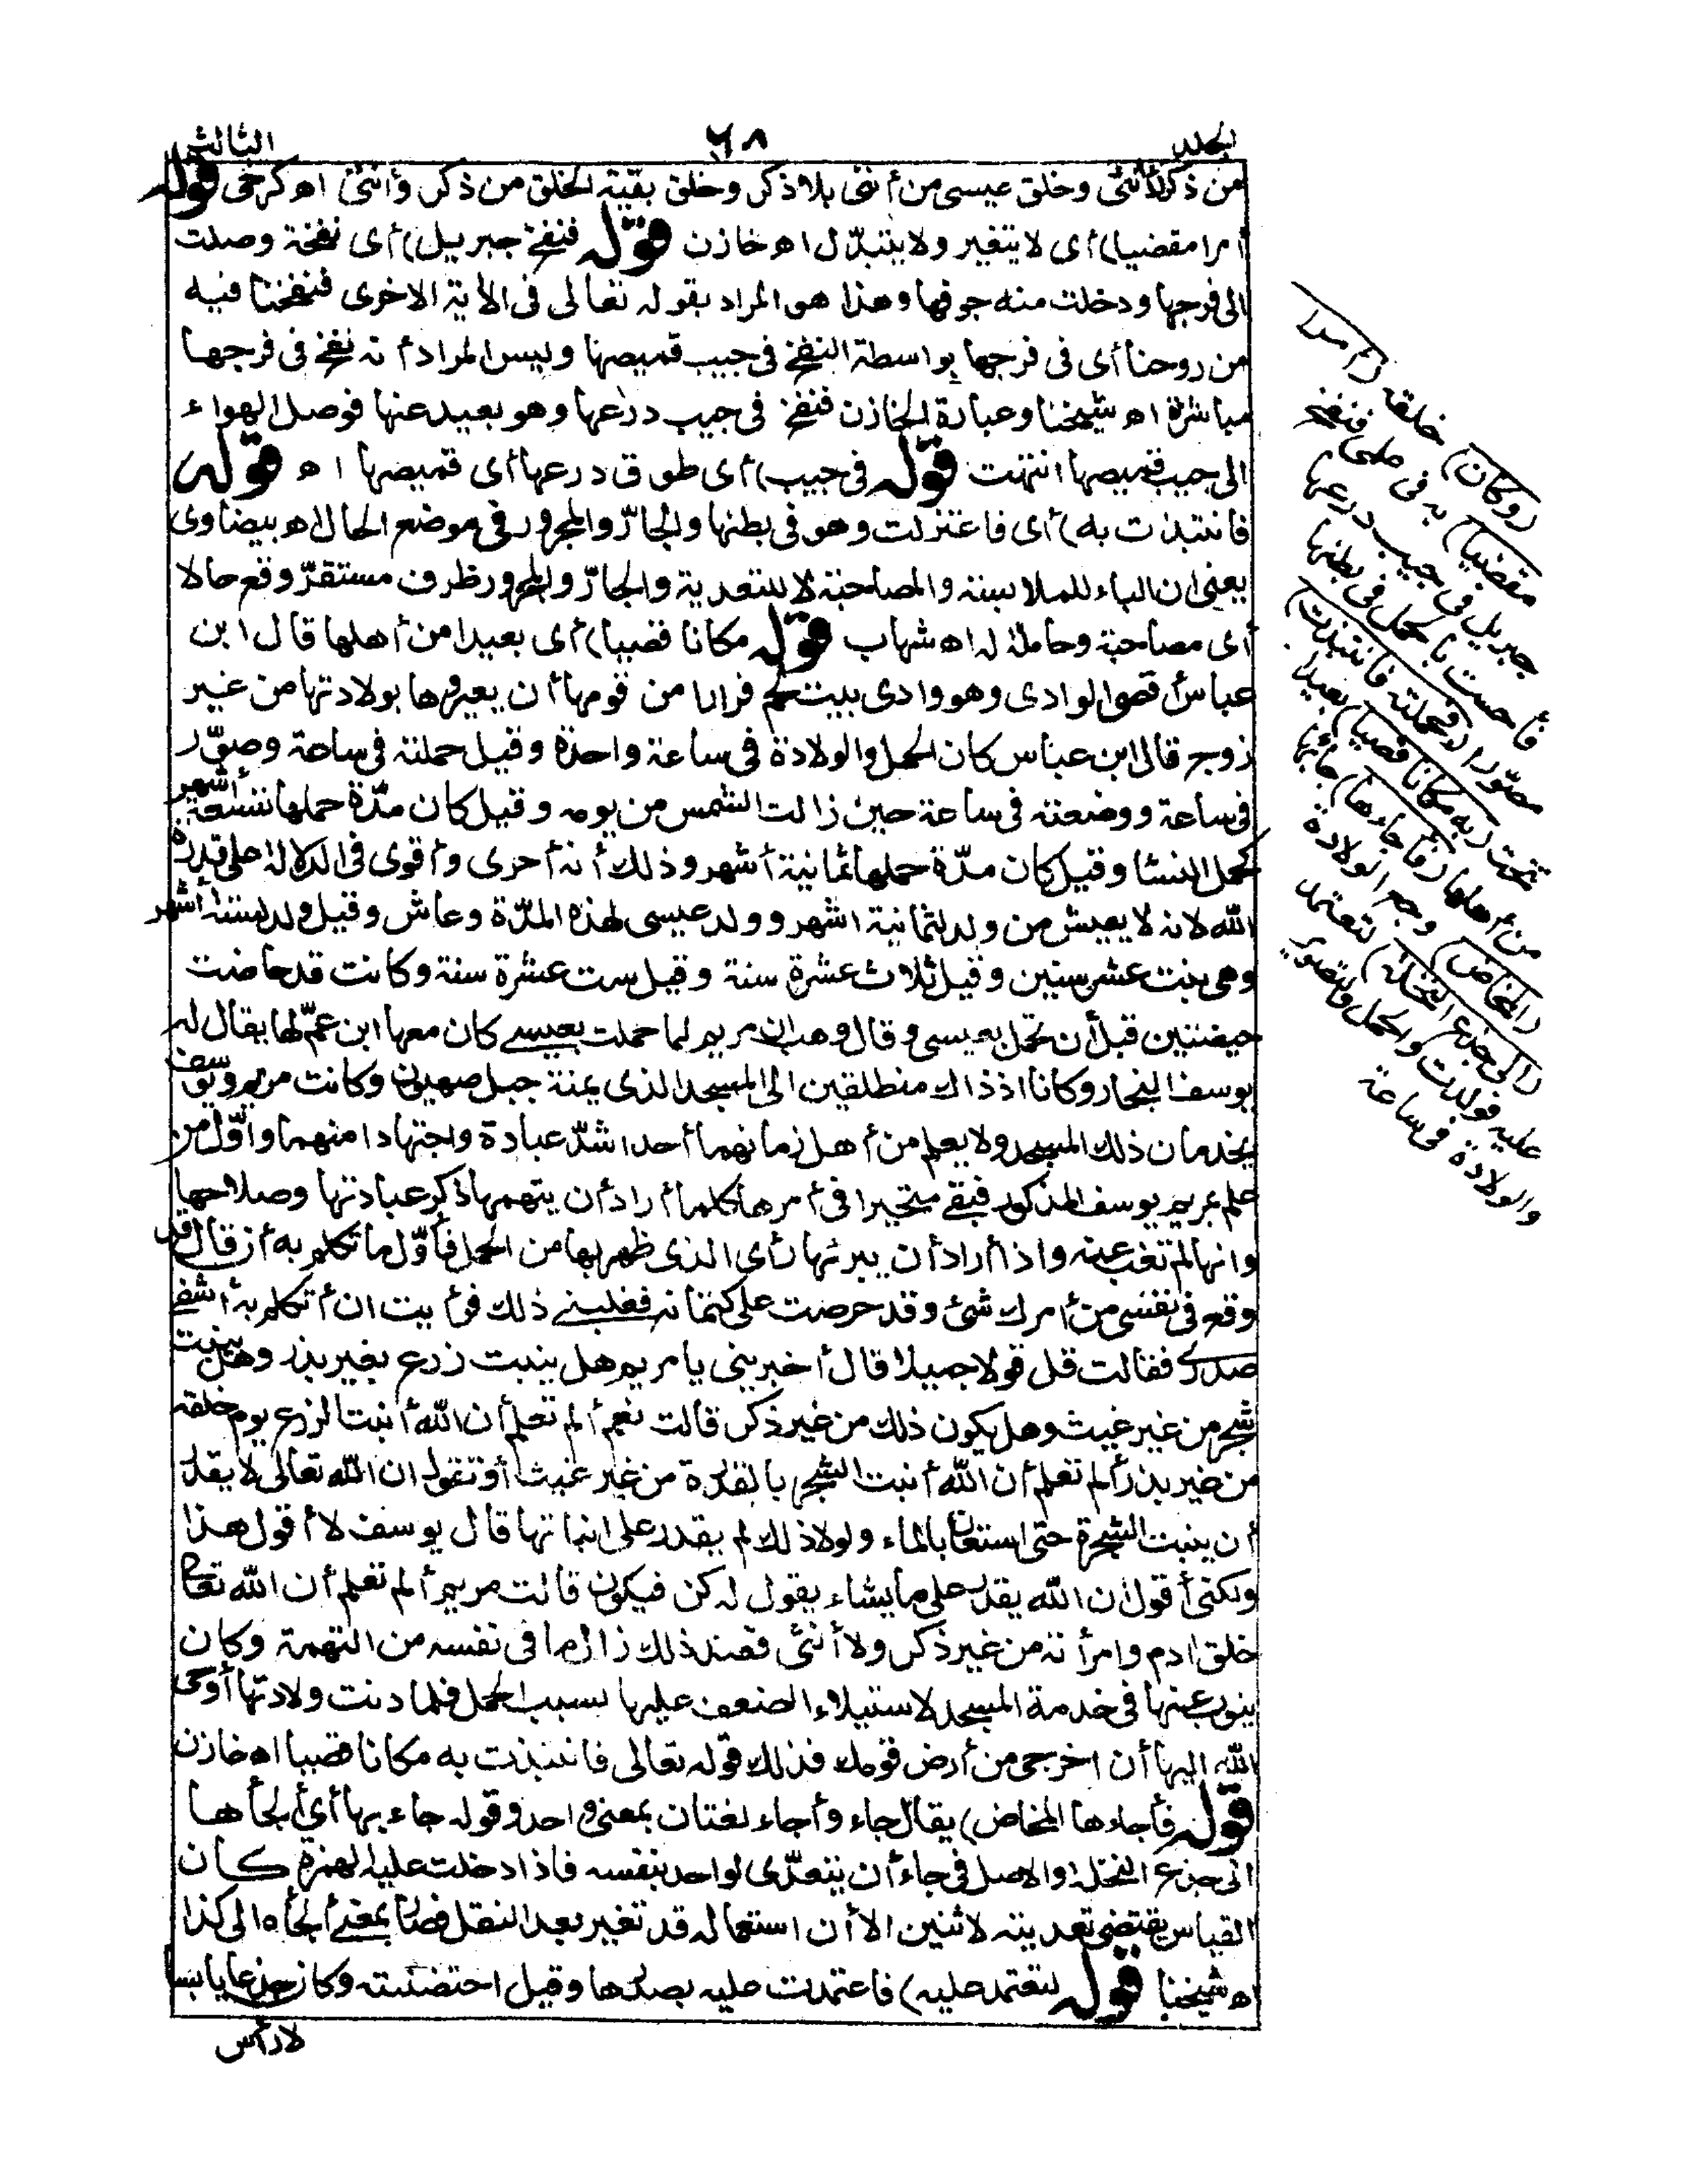 الجلد ٦٨ الثالث
من ذكر لا أنثى وخلق عيسى من أنثى بلا ذكر وخلق بقية الخلق من ذكر وأنثى اه كرخى قوله
أمرا مقضيا) أى لا يتغير ولا يتبدّل اه خازن قوله فنفخ جبريل) أى نفخة وصلت
الى فرجها ودخلت منه جوفها وهذا هو المراد بقوله تعالى فى الأية الاخرى فنفخنا فيه
من روحنا أى فى فرجها بواسطة النفخ فى جيب قميصها وليس المراد أنه نفخ فى فرجها
مباشرة اه شيخنا وعبارة الخازن فنفخ فى جيب درعها وهو بعيد عنها فوصل الهواء
الى جيب قميصها انتهت قوله فى جيب) أى طوق درعها أى قميصها اه قوله
فانتبذت به) أى فاعتزلت وهو فى بطنها والجارّ والمجرور فى موضع الحال اه بيضاوى
يعنى ان الباء للملابسة والمصاحبة لا للتعدية والجارّ والمجرور ظرف مستقرّ وقع حالا
أى مصاحبة وحاملة له اه شهاب قوله مكانا قصيا) أى بعيدا من أهلها قال ابن
عباس أقصى الوادى وهو وادى بيت لحم فرارا من قومها أن يعيروها بولادتها من غير
زوج قال ابن عباس كان الحمل والولادة فى ساعة واحدة وقيل حملته فى ساعة وصوّر
فى ساعة ووضعته فى ساعة حين زالت الشمس من يومه وقيل كان مدّة حملها تسعة أشهر
كحمل النسا وقيل كان مدّة حملها ثمانية أشهر وذلك أنه أحرى وأقوى فى الدلالة على قدرة
الله لانه لا يعيش من ولد لثمانية اشهر وولد عيسى لهذه المدّة وعاش وقيل ولد لستة أشهر
وهى بنت عشر سنين وقيل ثلاث عشرة سنة وقيل ست عشرة سنة وكانت قد حاضت
حيضتين قبل أن تحمل بعيسى وقال وهب ان مريم لما حملت بعيسى كان معها ابن عمّ لها يقال له
يوسف النجار وكانا اذ ذاك منطلقين الى المسجد الذى يمنة جبل صهيون وكانت مريم ويوسف
يخدمان ذلك المسجد ولا يعلم من أهل زمانهما أحد اشدّ عبادة واجتهادا منهما واوّل من
علم بمريم يوسف المذكور فبقى متحيرا فى أمرها كلما أراد أن يتهمها ذكر عبادتها وصلاحها
وانها لم تغب عنه واذا أراد أن يبرئها رأى الذى ظهر بها من الحمل فأوّل ما تكلم به أن قال قد
وقع فى نفسى من أمرك شئ وقد حرصت على كتمانه فغلبنى ذلك فرأيت ان أتكلم به أشفى
صدرى فقالت قل قولا جميلا قال أخبرينى يا مريم هل ينبت زرع بغير بذر وهل ينبت
شجر من غير غيث وهل يكون ذلك من غير ذكر قالت نعم ألم تعلم أن الله أنبت الزرع يوم خلقه
من غير بذر ألم تعلم أن الله أنبت الشجر بالقدرة من غير غيث أو تقول ان الله تعالى لا يقدر
أن ينبت الشجرة حتى استعان بالماء ولولا ذلك لم يقدر على انباتها قال يوسف لا أقول هذا
ولكنى أقول ان الله يقدر على ما يشاء يقول له كن فيكون قالت مريم ألم تعلم أن الله تعالى
خلق ادم وامرأته من غير ذكر ولا أنثى فعند ذلك زال ما فى نفسه من التهمة وكان
ينوب عنها فى خدمة المسجد لاستيلاء الضعف عليها بسبب الحمل فلما دنت ولادتها أوحى
الله اليها أن اخرجى من أرض قومك فذلك قوله تعالى فانتبذت به مكانا قصيا اه خازن
قوله فأجاءها المخاض) يقال جاء وأجاء لغتان بمعنى واحد وقوله جاء بها أى ألجأها
الى جذع النخلة والاصل فى جاء أن يتعدّى لواحد بنفسه فاذا دخلت عليه الهمزة كان
القياس يقتضى تعديته لاثنين الا أن استعماله قد تغير بعد النقل فصار بمعنى ألجأه الى كذا
اه شيخنا قوله لتعتمد عليه) فاعتمدت عليه بصدرها وقيل احتضنته وكان جذعا يابسا
لا رأس
(وكان) خلقه (أمرا
مقضيا) به فى علمى فنفخ
جبريل فى جيب درعها
فأحست بالحمل فى بطنها
مصوّرا (فحملته فانتبذت)
تنحت (به مكانا قصيا) بعيدا
من أهلها (فأجاءها) جاء بها
(المخاض) وجع الولادة
(الى جذع النخلة) لتعتمد
عليه فولدت والحمل والتصوير
والولادة فى ساعة